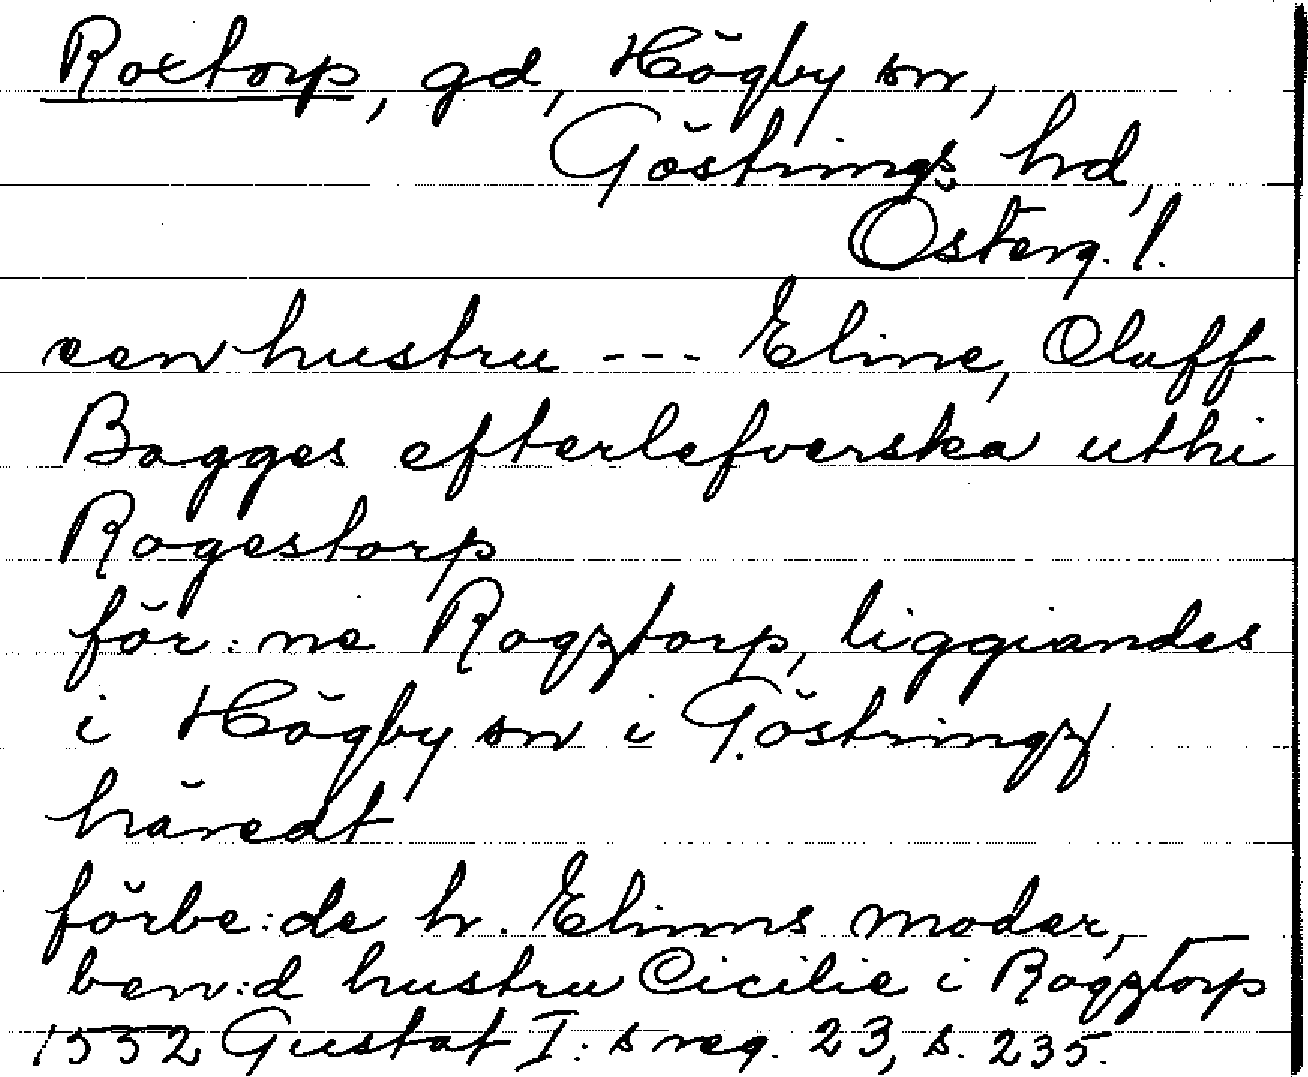 Roxtorp, gd, Högby sn,
Göstrings hd,
Österg. l.
een hustru --- Eline, Oluff
Bagges efterlefverska uthi
Rogestorp
för:ne Rogztorp, liggiandes
i Högby sn i Göstringz
häredt
förbe:de h. Elinns moder,
ben:d hustru Cicilie i Rogztorp
1552 Gustaf I:s reg. 23, s. 235.